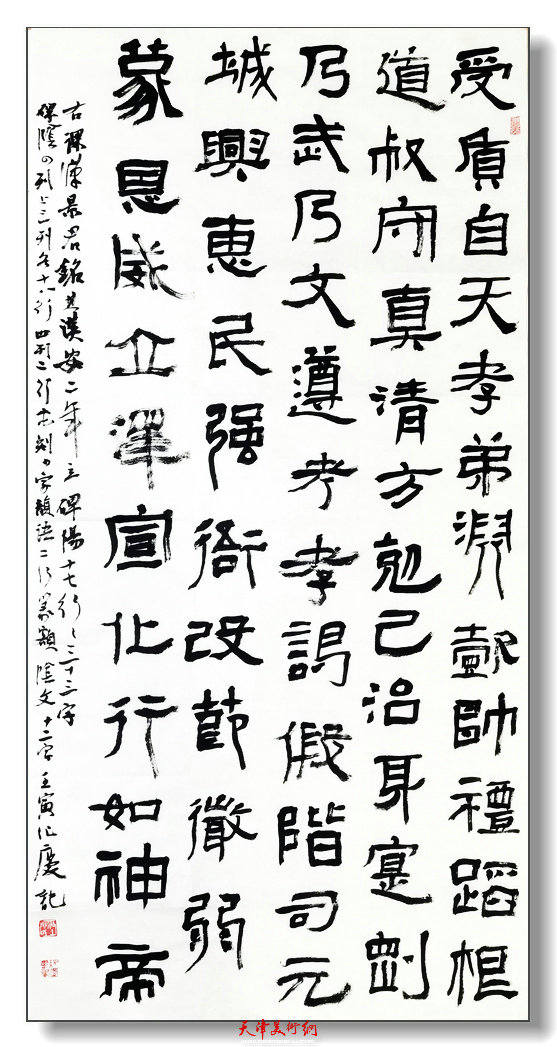 受質自天孝弟淵懿帥禮蹈根
道叔守真清方剋己治身寔剛
乃武乃文遵考孝謁假階司元
城興惠民强衙改節微弱
蒙恩威立澤宣化行如神帝
古隸漢景君銘其漢安二年立碑陽十七行々三十三字
碑陰四列上三列各十八行四列二行 額 二行篆額陰文十二字壬寅 慶記
天津美術網